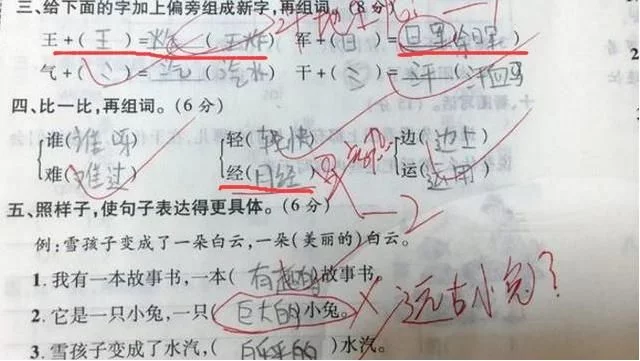 三、给下面的字加上偏旁组成新字,再组词。(8分)
王+(王)=炸(王炸) 军+(日)=晕(
气+(氵)=汽(汽水) 干+(氵)=汗(汗血马
四、比一比,再组词。(6分)
谁(谁呀 轻(轻快) 边(边上
难(难过) 经(月经) 运(运用)
-2
五、照样子,使句子表达得更具体。(6分)
例:雪孩子变成了一朵白云,一朵(美丽的)白云。
1.我有一本故事书,一本(有趣的)故事书。
2.它是一只小兔,一只(巨大的)小兔。 远古小兔?
3.雪孩子变成了水汽,(白乎乎的)水汽。